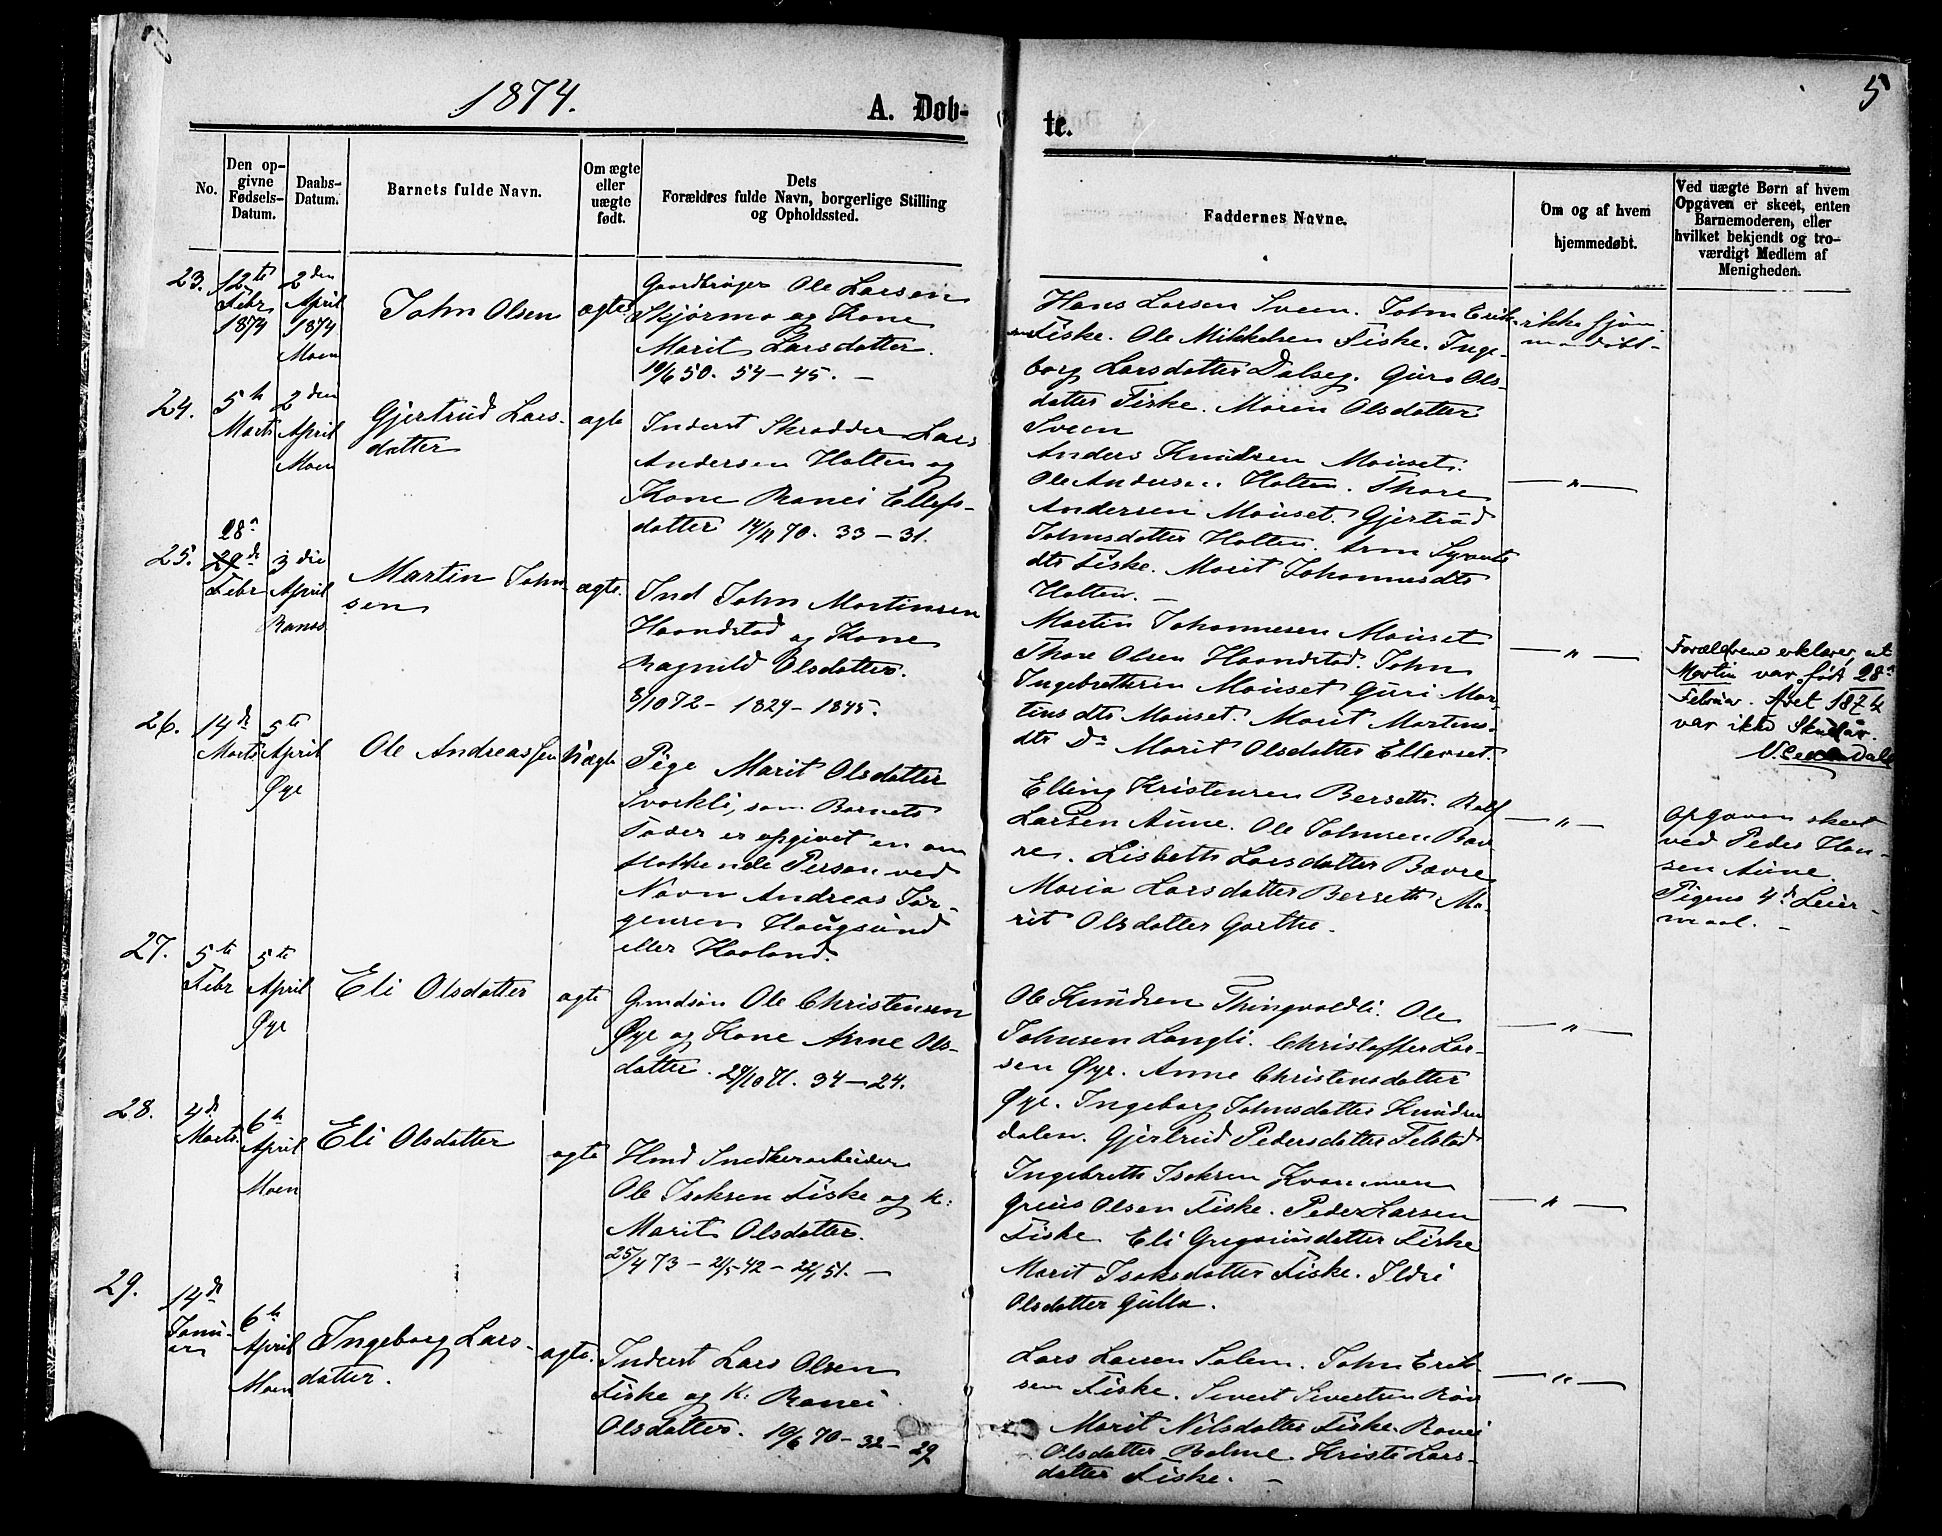 1874.
A. Døb-
te.
5
No.
Den op-
givne
Fødsels-
Datum.
Daabs-
Datum.
Barnets fulde Navn.
Om ægte
eller
uægte
født.
Dets
Forældres fulde Navn, borgerlige Stilling
og Opholdssted.
Faddernes Navne.
Om og af hvem
hjemmedøbt.
Ved uægte Børn af hvem
Opgaven er skeet, enten
Barnemoderen, eller
hvilket bekjendt og tro-
værdigt Medlem af
Menigheden.
23.
12te
Febr
1874
2den
April
1874
Moen
John Olsen
ægte
Gaardbruger Ole Larsen
Skjørmo og Kone
Marit Larsdatter.
54-45. -
Hans Larsen Sveen. John Erik-
sen Fiske. Ole Mikkelsen Fiske. Inge-
borg Larsdatter Dalseg. Guro Ols-
datter Fiske. Maren Olsdatter
Sveen
ikke hjem-
medøbt-
24.
5te
Marts
2den
April
Moen
Gjertrud Lars-
datter
ægte
Inderst Skrædder Lars
Andersen Holten og
Kone Ranei Ellefs-
datter 70. 33-31.
Anders Knudsen Mouset.
Ole Andersen Holten. Thore
Andersen Mouset. Gjertrud
Johnsdatter Holten. Arn Syverts
dtr Fiske. Marit Johannesdtr
Holten. -
- " -
25.
28de
29de
Febr
3die
April
Ranes
Martin John-
sen
ægte.
Ind John Martinsen
Haandstad og Kone
Ragnild Olsdatter.
8/10 72 - 1829 - 1845.
Martin Johannesen Mouset
Thore Olsen Haandstad. John
Ingebretsen Mouset Guri Mar-
tins dtr Mouset. Marit Martins-
dtr Do Marit Olsdatter Ellevset.
- " -
Forældrene erklærer, at
Martin var født 28de
Februar. Aaret 1874
var ikke Skudaar.
26.
14de
Marts
5te
April
Øye
Ole Andreassen
Uægte
Pige Marit Olsdatter
Svorkli, som Barnets
Fader er opgivet en om
flakkende Person ved
Navn Andreas Jør-
gensen Haugsund
eller Haaland.
Elling Kristensen Berseth. Rolf
Larsen Aune. Ole Johnsen Bæv
re. Lisbeth Larsdatter Bævre
Maria Larsdatter Berseth Ma-
rit Olsdatter Garthe.
- " -
Opgaven skeet
ved Peder Han-
sen Aune.
Pigens 4de Leier-
maal. -
27.
5te
Febr
5te
April
Øye
Eli Olsdatter
ægte
Gmdsøn Ole Christensen
Øye og Kone Anne Ols-
datter. 29/10 71. 34-24.
Ole Knudsen Thingvoldli. Ole
Johnsen Langli. Christoffer Lar-
sen Øye. Anne Christensdatter
Øye. Ingeborg Johnsdatter Knudsen
dalen. Gjertrud Pedersdatter Felstad
- " -
28.
4de
Marts.
6te
April
Moen
Eli Olsdatter
ægte
Hmd Snedkerarbeider
Ole Isaksen Fiske og K:
Marit Olsdatter.
25/4 73 - 2/5 42 - 22/1 51. -
Ingebreth Isaksen Kvammen
Greius Olsen Fiske. Peder Larsen
Fiske Eli Gregoriusdatter Fiske
Marit Isaksdatter Fiske. Ildri
Olsdatter Gulla.
- " -
29.
14de
Janu-
ar
6te
April
Moen
Ingeborg Lars-
datter.
ægte.
Inderst Lars Olsen
Fiske og K: Ranei
Olsdatter. 19/6 70 - 32 - 29
Lars Larsen Solem. John Erik-
sen Fiske. Sivert Sivertsen Røv
Marit Nilsdatter Fiske. Ranei
Olsdatter Bolme. Kristi Lars-
datter Fiske. -
- " -